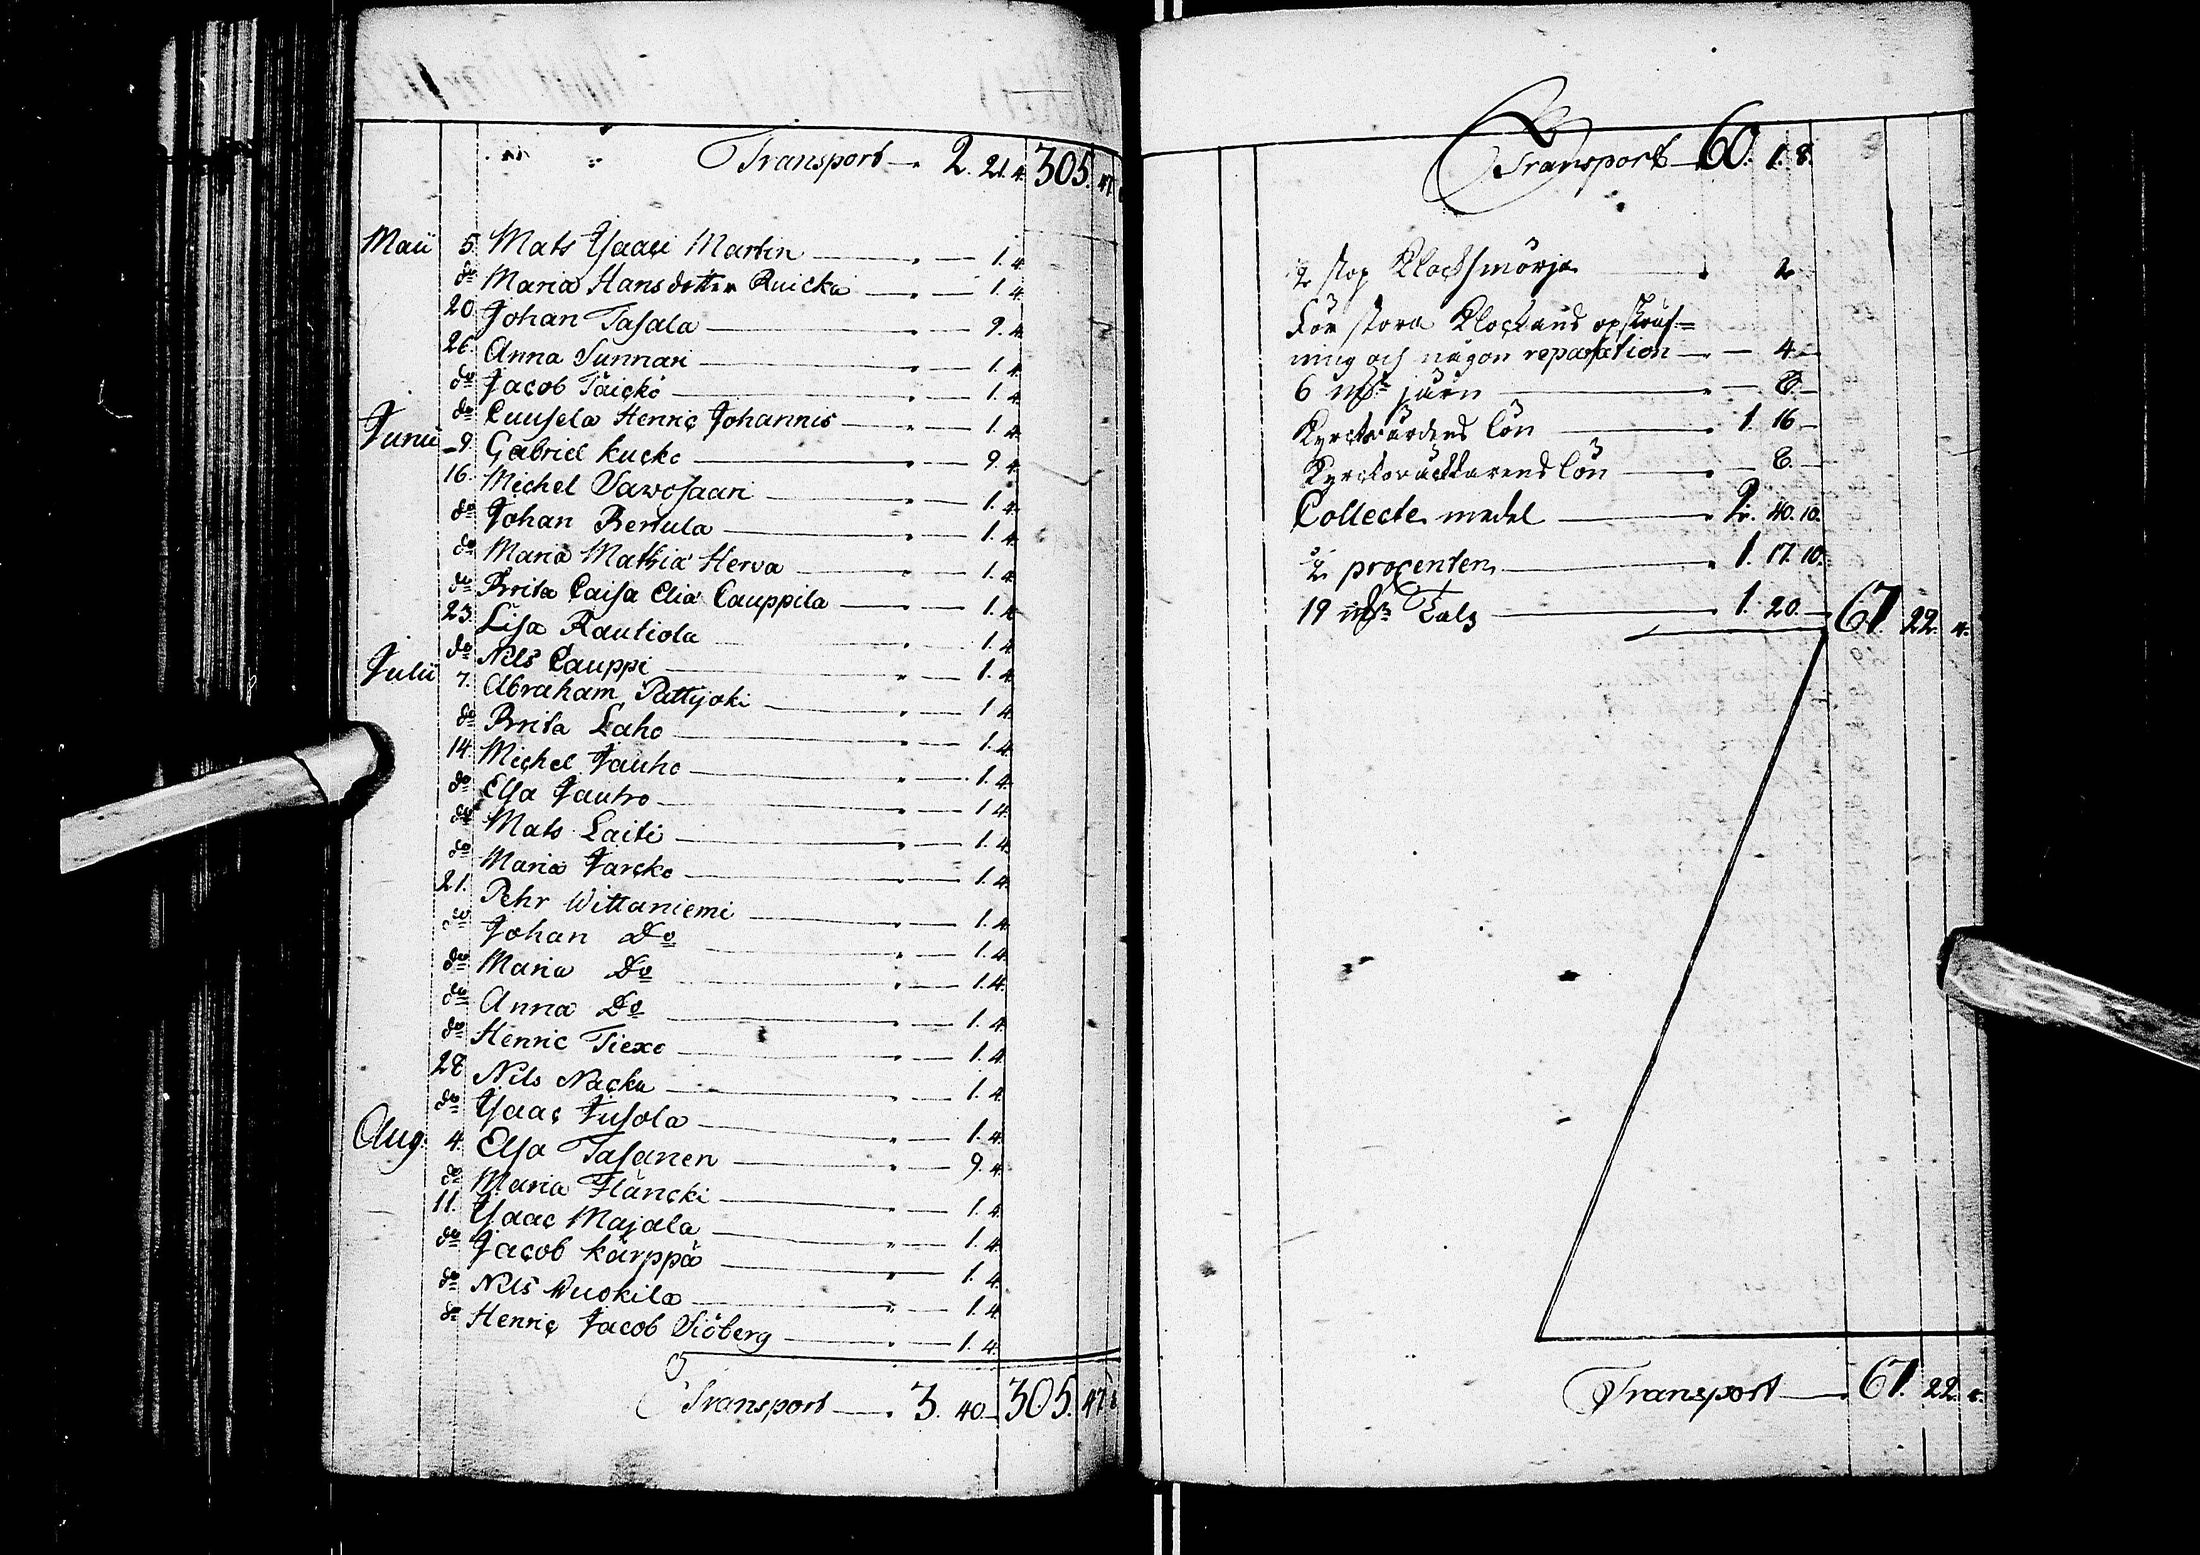 Transport — 2. 21. 4. 305. 47.
Maii 5. Mats Ysaaci Martin — 1. 4.
do Maria Hansdotter Ruicka — 1. 4.
20 Johan Tasala — 9. 4.
26. Anna Sunnari — 1. 4.
do Jacob Täickö — 1. 4.
do Cuusela Henric Johannis — 1. 4.
Junii 9. Gabriel Kucko — 9. 4.
16. Michel Sawosaari — 1. 4.
do Johan Rentula — 1. 4.
do Maria Mathiæ Herva — 1. 4.
do Brita Caisa Eliæ Cauppila — 1. 4.
23. Lisa Rautiola — 1. 4.
do Nils Cauppi — 1. 4.
Julii 7. Abraham Pattijoki — 1. 4.
do Brita Laho — 1. 4.
14. Michel Jauho — 1. 4.
do Elsa Jauho — 1. 4.
do Mats Laiti — 1. 4.
do Maria Jarcko — 1. 4.
21. Pehr Wittaniemi — 1. 4.
do Johan Do — 1. 4.
do Maria Do — 1. 4.
do Anna Do — 1. 4.
do Henric Tiexo — 1. 4.
28 Nils Nacku — 1. 4.
do Ysaac Jusola — 1. 4.
Aug. 4. Elsa Tasanen — 9. 4.
do Maria Fläncki — 1. 4.
11. Ysaac Majala — 1. 4.
do Jacob Kärppä — 1. 4.
do Nils Wuokila — 1. 4.
do Henric Jacob Siöberg — 1. 4.
Transport — 3. 40 — 305. 47. 8
Transport 60. 1. 8.
2 stop Klocksmörja — 2
För stora Klockans opskruf=
ning och någon reparation — 4 —
6 järn — 6 —
Kyrckwärdens lön — 1. 16 —
Kyrckowäcktarens lön — 6 —
Collecte medel — 2. 40. 10.
2 procenten — 1. 17. 10.
19 Talg — 1. 20 — 67. 22. 4.
Transport — 67. 22.